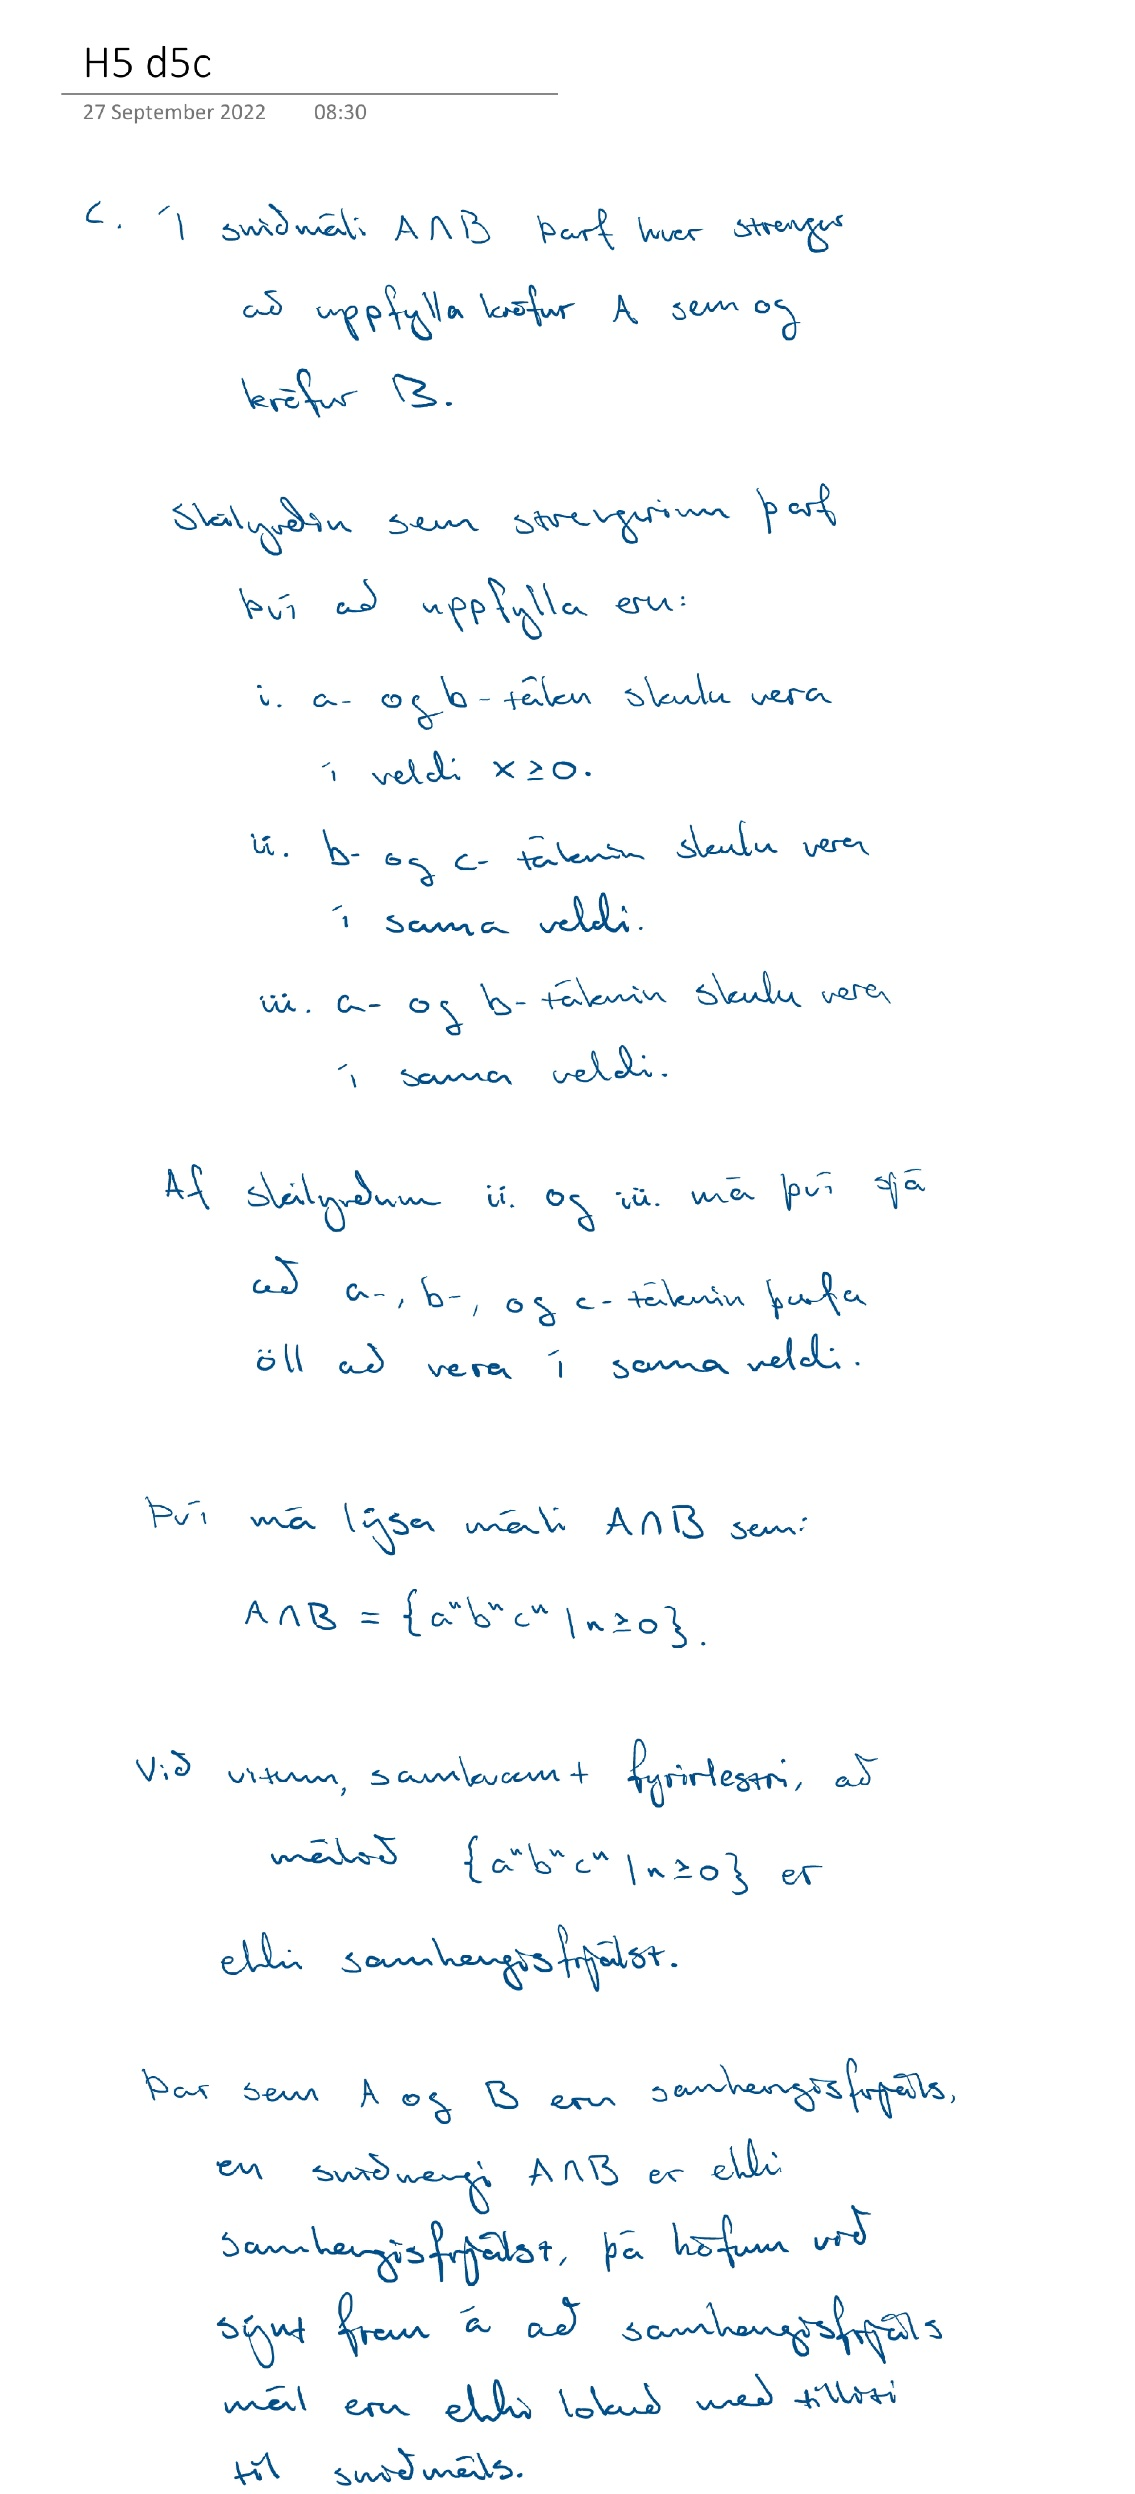 H5 d5c
27 September 2022 08:30
c. Í sniðmáli A∩B þarf hver strengur
að uppfylla kröfur A sem og
kröfur B.
Skilyrðin sem strengurinn þarf
því að uppfylla eru:
i. a- og b-tákn skulu vera
í veldi x≥0.
ii. b- og c-táknin skulu vera
í sama veldi.
iii. a- og b-táknin skulu vera
í sama veldi.
Af skilyrðum ii. og iii. má því sjá
að a-, b-, og c-táknin þurfa
öll að vera í sama veldi.
Því má lýsa máli A∩B sem:
A∩B = {aⁿbⁿcⁿ | n≥0}.
Við vitum, samkvæmt fyrirlestri, að
málið {aⁿbⁿcⁿ | n≥0} er
ekki samhengisfrjálst.
Þar sem A og B eru samhengisfrjáls,
en sniðmengi A∩B er ekki
samhengisfrjálst, þá höfum við
sýnt fram á að samhengisfrjáls
mál eru ekki lokuð með tilliti
til sniðmáls.